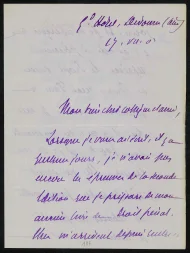 Gd Hôtel, Divonne (Ain)
27. VII. 0
Mon bien cher collègue et ami,
Lorsque je vous ai écrit, il y a
quelques jours, je n'avais pas
encore les épreuves de la seconde
édition que je prépare de mon
ancien livre de Droit pénal.
Elles m'arrivent depuis